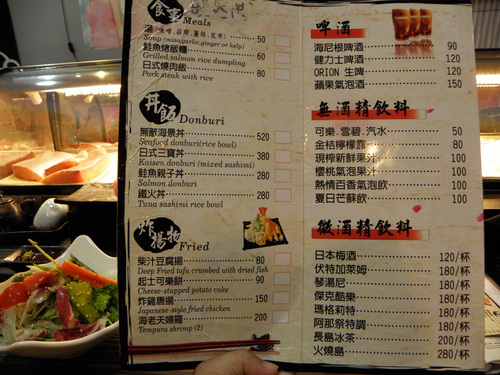 食事
Meals
湯(味噌.蒜辣.薑絲.昆布) 50
Soup (miso/garlic,ginger or kelp)
鮭魚烤飯糰 60
Grilled salmon rice dumpling
日式燒肉飯 80
Pork steak with rice
丼飯
Donburi
無敵海景丼 520
Seafood donburi(rice bowl)
日式三寶丼 380
Kaisen donburi (mixed sashimi)
鮭魚親子丼 280
Salmon donburi
鐵火丼 280
Tuna sashimi rice bowl
炸揚物
Fried
柴汁豆腐揚 80
Deep Fried tofu crumbed with dried fish
起士可樂餅 90
Cheese-stupped potato cake
炸雞唐揚 150
Japanese-style fried chicken
海老天婦羅 200
Tempura shrimp (2)
啤酒
海尼根啤酒 90
健力士啤酒 120
ORION 生啤 120
蘋果氣泡酒 150
無酒精飲料
可樂.雪碧.汽水 50
金桔檸檬露 80
現榨新鮮果汁 100
櫻桃氣泡果汁 100
熱情百香氣泡飲 100
夏日芒蘇飲 100
微酒精飲料
日本梅酒 120/杯
伏特加萊姆 180/杯
琴湯尼 180/杯
傑克酷樂 180/杯
瑪格莉特 180/杯
阿那祭特調 180/杯
長島冰茶 200/杯
火燒島 280/杯